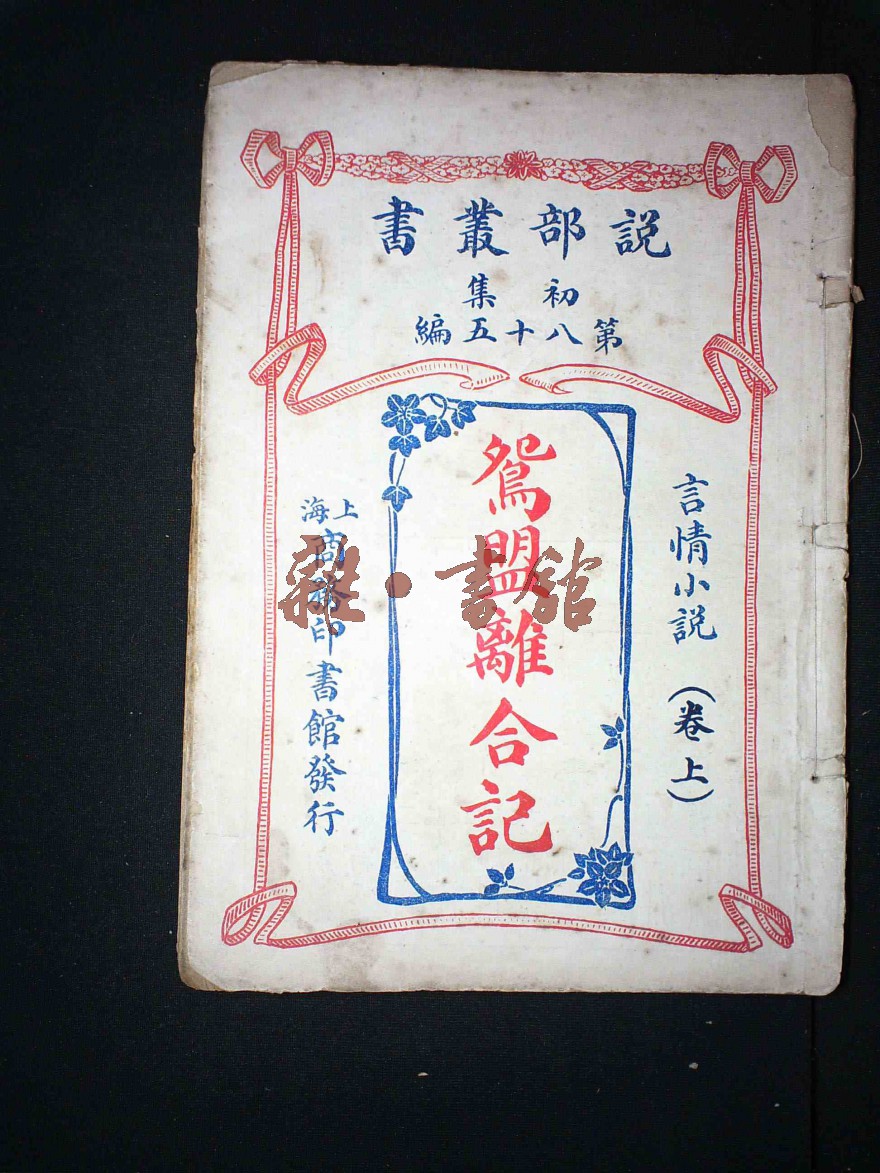 説部叢書
初集
第八十五編
言情小説（卷上）
鴛盟離合記
上海
商務印書館發行
雜·書館